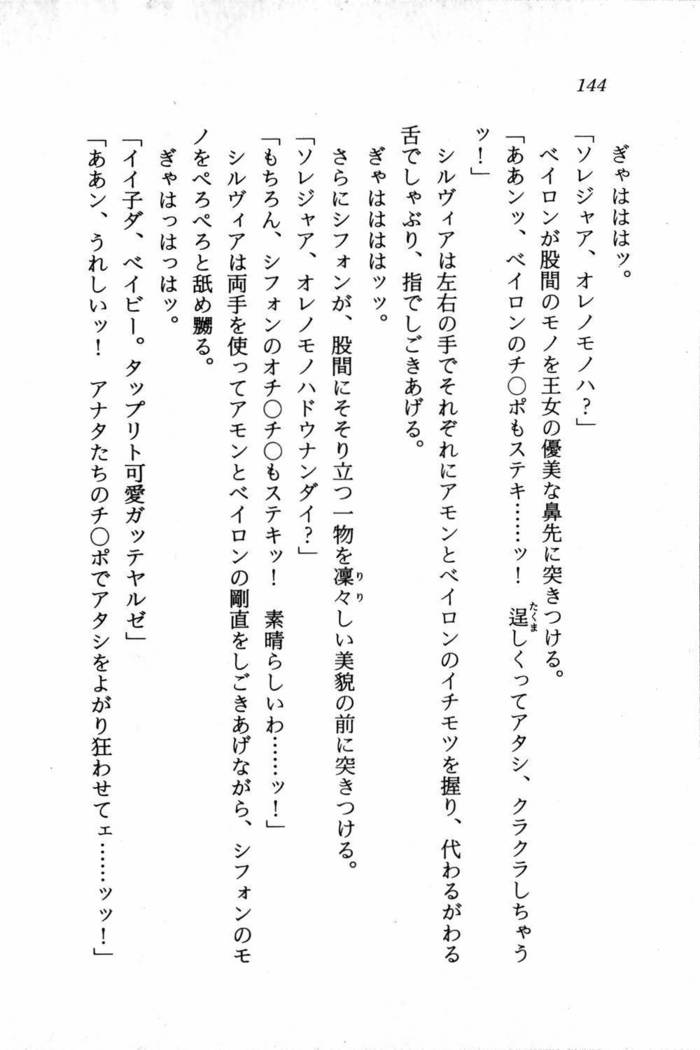 144
ぎゃはははッ。
「ソレジャア、オレノモノハ？」
ベイロンが股間のモノを王女の優美な鼻先に突きつける。
「ああンッ、ベイロンのチ〇ポもステキ……ッ！　逞しくってアタシ、クラクラしちゃう
たくま
ッ！」
シルヴィアは左右の手でそれぞれにアモンとベイロンのイチモツを握り、代わるがわる
舌でしゃぶり、指でしごきあげる。
ぎゃはははははッッ。
さらにシフォンが、股間にそそり立つ一物を凜々しい美貌の前に突きつける。
りり
「ソレジャア、オレノモノハドウナンダイ？」
「もちろん、シフォンのオチ〇チ〇もステキッ！　素晴らしいわ……ッ！」
シルヴィアは両手を使ってアモンとベイロンの剛直をしごきあげながら、シフォンのモ
ノをぺろぺろと舐め嬲る。
ぎゃはっはっはッ。
「イイ子ダ、ベイビー。タップリト可愛ガッテヤルゼ」
「ああン、うれしいッ！　アナタたちのチ〇ポでアタシをよがり狂わせてェ……ッッ！」